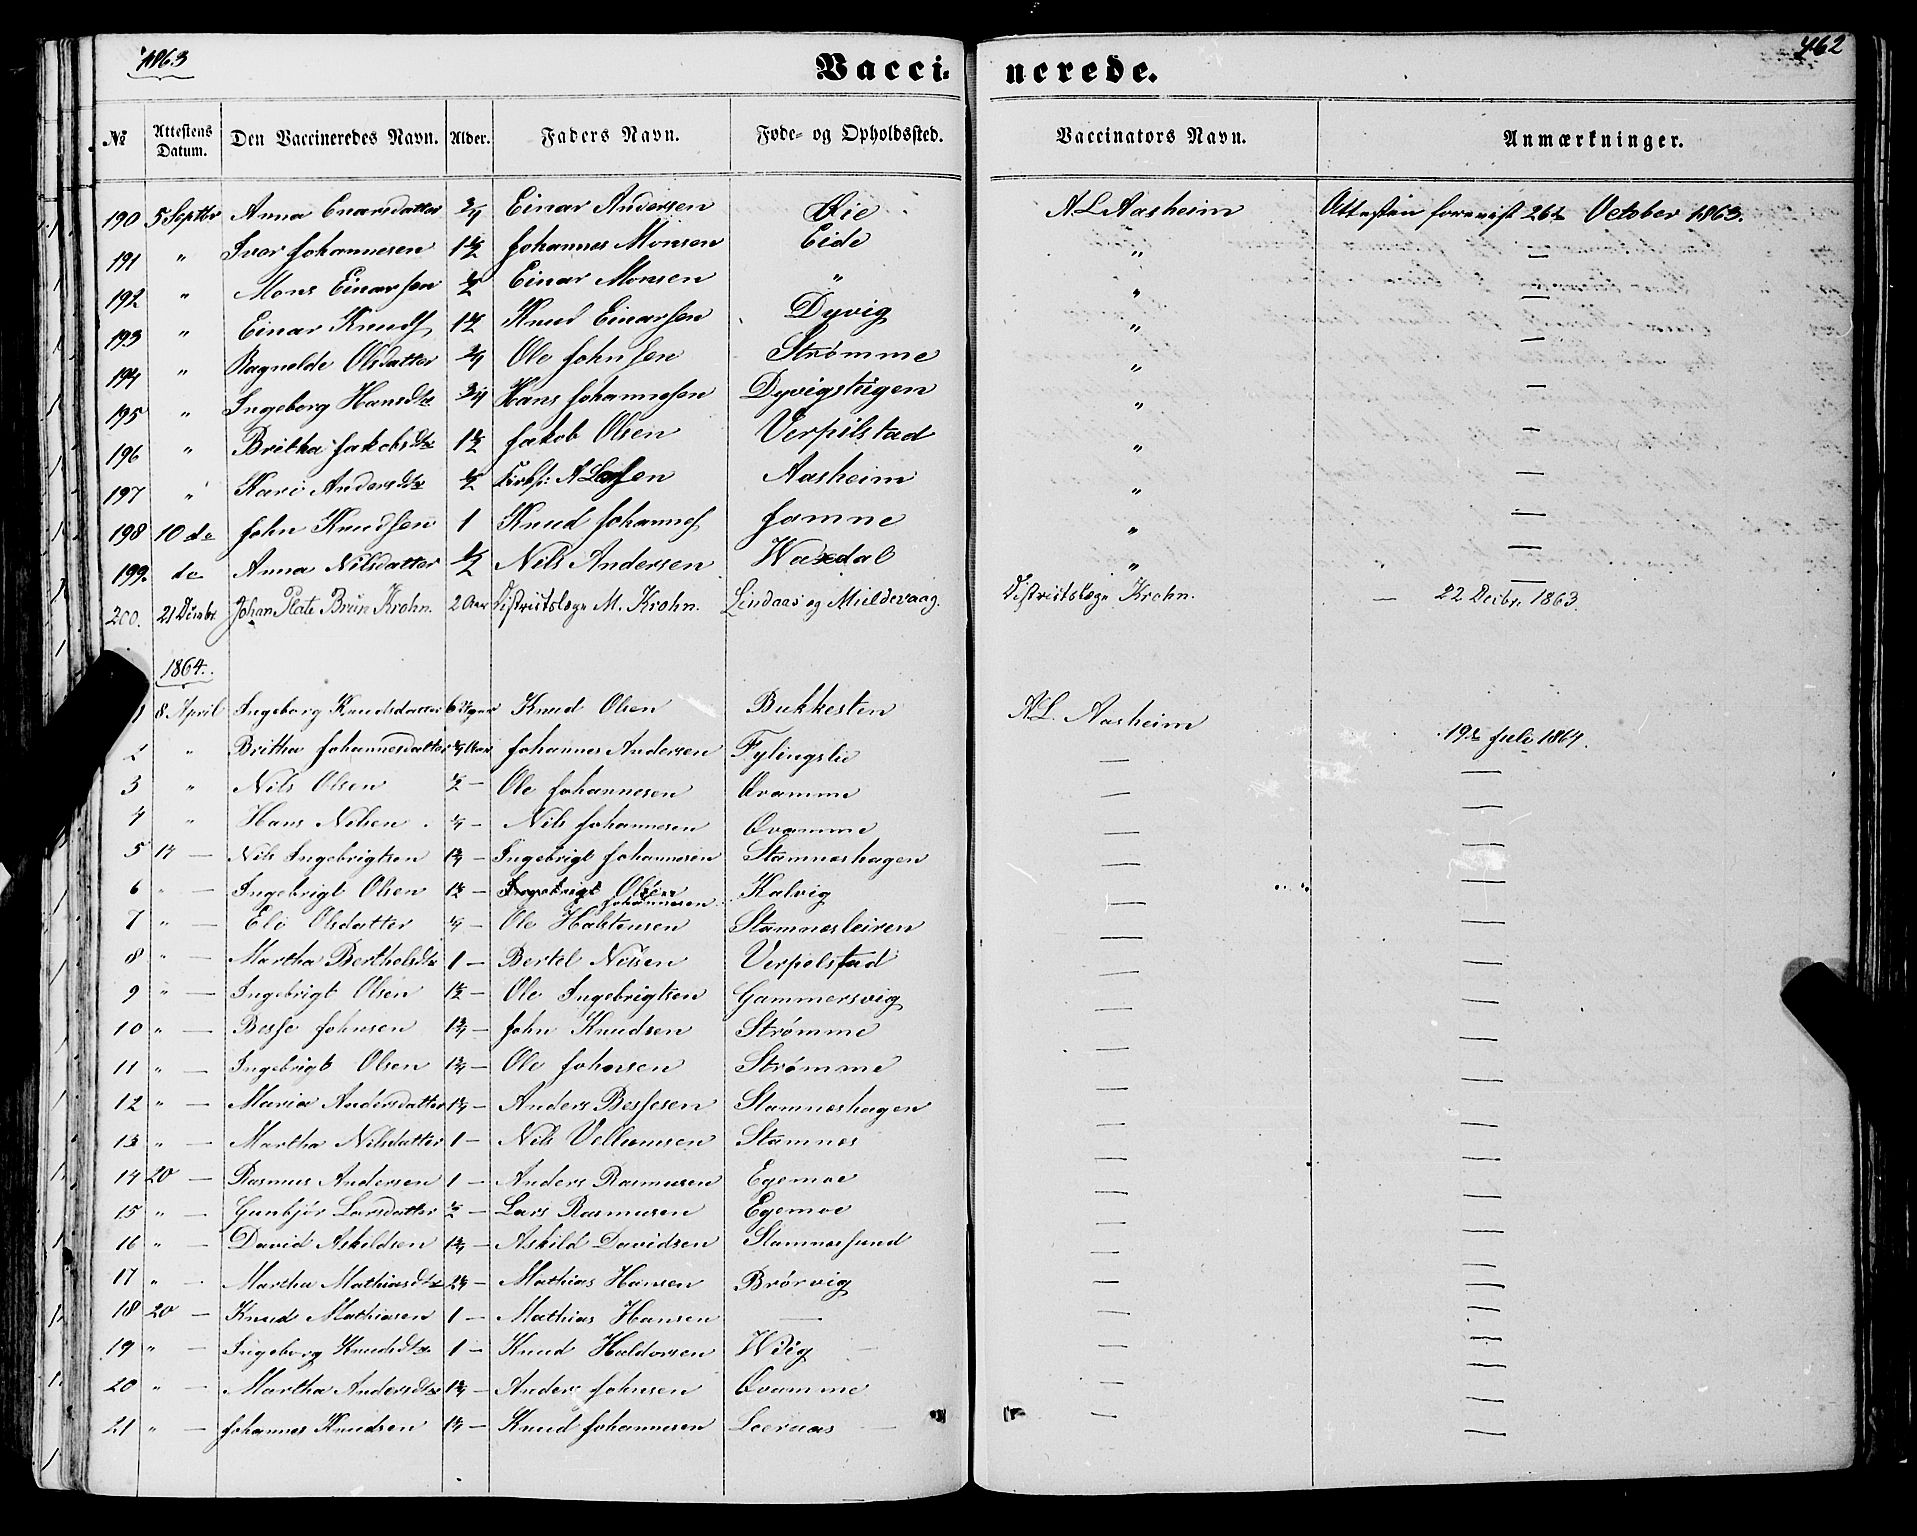 1863
462
Vaccinerede.
№ Attestens Datum. Den Vaccineredes Navn. Alder. Faders Navn. Føde- og Opholdssted. Vaccinators Navn. Anmærkninger.
190 5 Septbr Anna Enarsdatter 3/4 Einar Andersen Øie A L Aasheim Attesten forevist 26de October 1863.
191 " Ivar Johannesen 1 1/2 Johannes Monsen Eide " —
192 " Mons Einarsen 1/2 Einar Monsen " " —
193 " Einar Knuds Knud Einarsen Dyvig " —
194 " Ragnalde Olsdatter 3/4 Ole Johnsen Strømme " —
195 " Ingeborg Hansdtr 3/4 Hans Johannesen Dyvigstuigen " —
196 " Britha Jakobsdtr 1 1/2 Jakob Olsen Verpilstad " —
197 " Kari Andersdtr 1/2 Kirkes: A Larsen Aasheim " —
198 10 do John Knudsen 1 Knud Johannes Jamne " —
199. do Anna Nilsdatter 1/2 Nils Andersen Waxdal " —
200. 21 Decbr Johan Plate Brun Krohn. 2 Aar Districtslæge M. Krohn. Lindaas og Mieldevaag. Districtslæge Krohn. — 22 Decbr. 1863.
1864.
1 8 April Ingeborg Knudsdatter 6 Uger Knud Olsen Bukkesten A.L. Aasheim 19de Juli 1864.
2 " Britha Johannesdatter Aar Johannes Andersen Fylingslie — —
3 " Nils Olsen 1/2 — Ole Johannesen Øvamme — —
4 " Hans Nilsen . — Nils Johannesen Øvamme — —
5 14 — Nils Ingebrigtsen — Ingebrigt Johannesen Stamneshagen — —
6 " — Ingebrigt Olsen 1 1/2 — Ingebrigt Olsen Johannesen Kalvig — —
7 " — Eli Olsdatter — Ole Halstensen Stamnesleiren — —
8 " — Martha Bertholsdtr 1 — Bertel Nilsen Verpelstad — —
9 " — Ingebrigt Olsen 1 1/2 — Ole Ingebrigtsen Gammersvig — —
10 " — Besse Johnsen — John Knudsen Strømme — —
11 " — Ingebrigt Olsen — Ole Johnsen Strømme — —
12 " — Maria Andersdatter — Anders Bessesen Stamneshagen — —
13 " — Martha Nilsdatter 1 — Nils Vellumsen Stamnes — —
14 20 — Rasmus Andersen 1 — Anders Rasmusen Egemoe — —
15 " — Gunbjør Larsdatter 1/2 — Lars Rasmusen Egemoe — —
16 " — David Askildsen — Askild Davidsen Stamnessund — —
17 " — Martha Mathiasdtr — Mathias Hansen Brørvig — —
18 20 — Knud Mathiasen 1 — Mathias Hansen — — —
19 " — Ingeborg Knudsdtr 1 — Knud Haldorsen — —
20 " — Martha Andersdtr — Anders Johnsen Øvamme — —
21 " — Johannes Knudsen — Knud Johannesen Leeraas — —